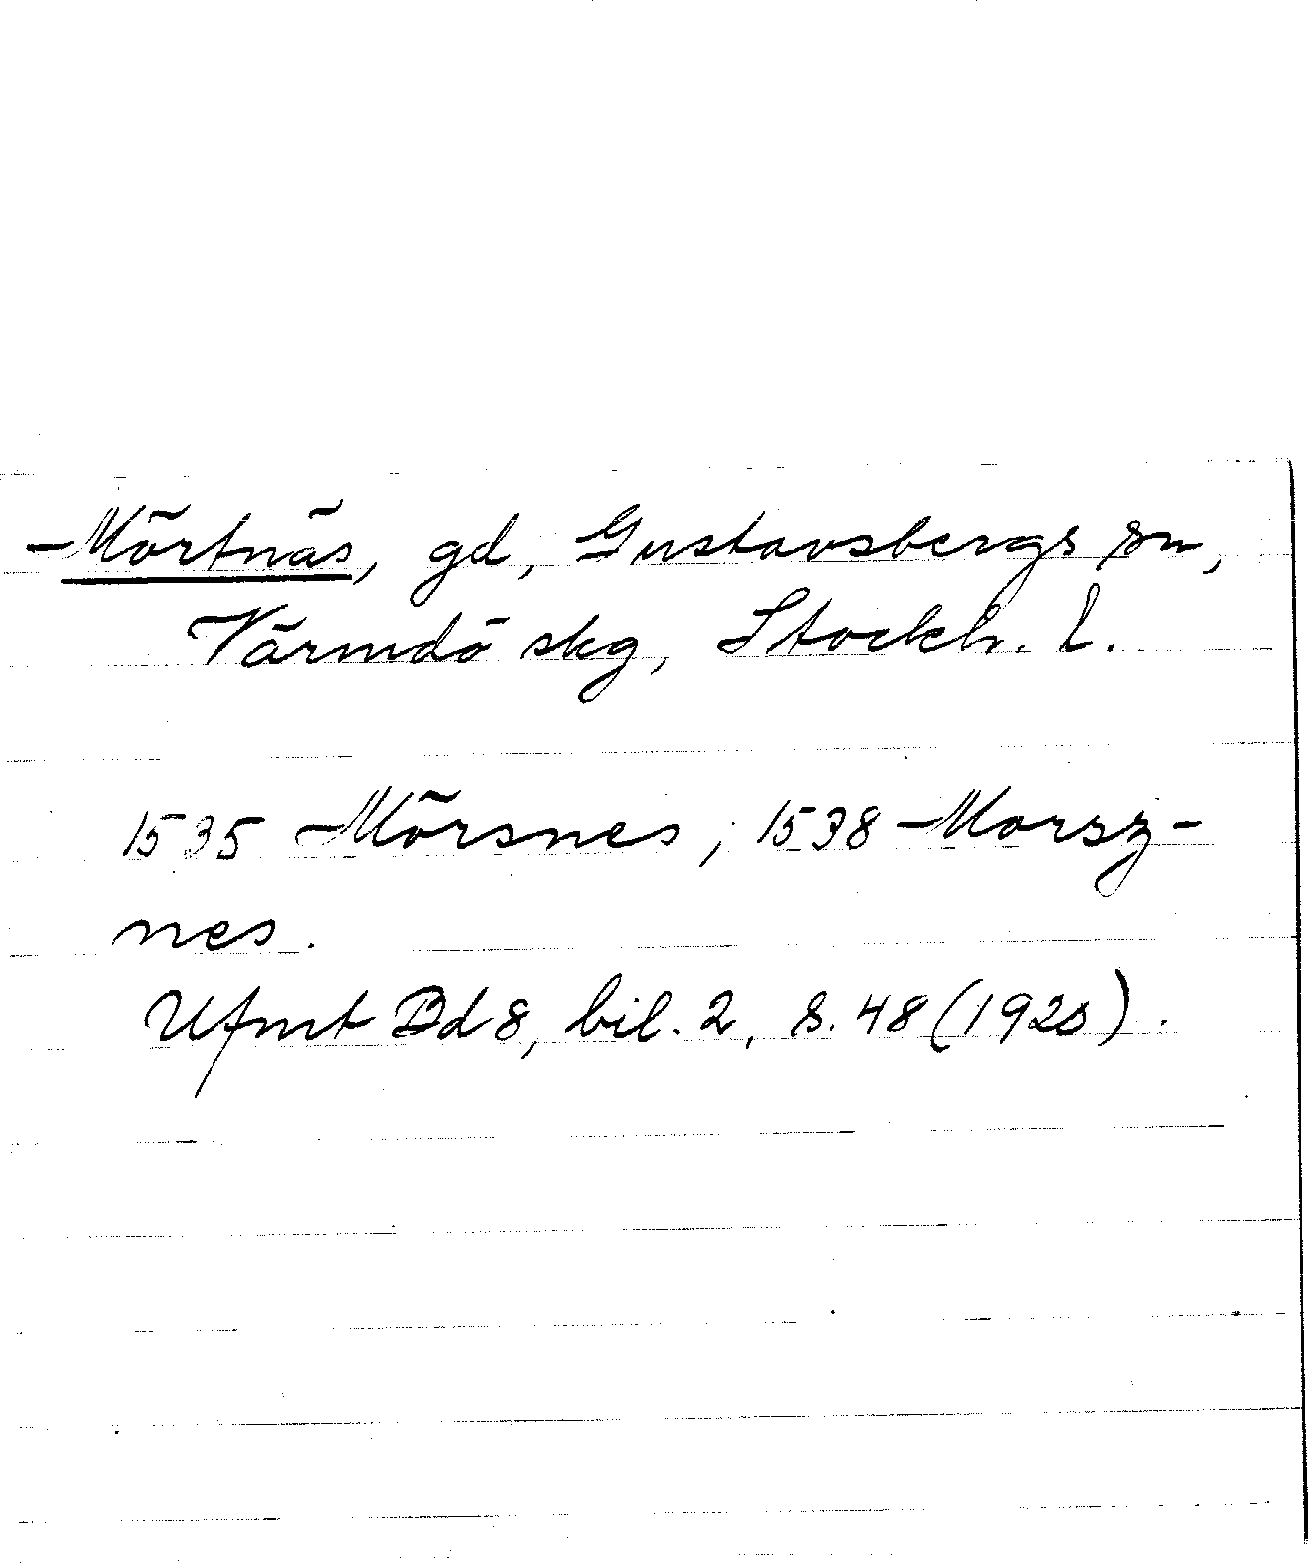 Mörtnäs, gd, Gustavsbergs sn,
Värmdö skg, Stockh. l.
1535 Mörsnes; 1538 Morsz-
nes.
Ufmt Bd 8, bil. 2, s. 48 (1920).